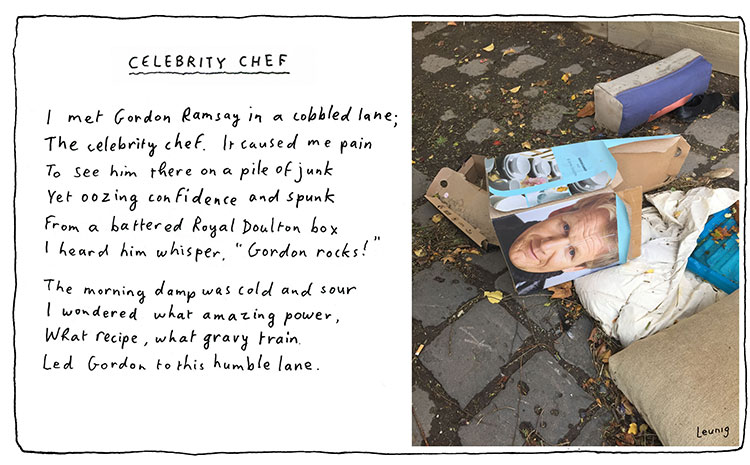 CELEBRITY CHEF
I met Gordon Ramsay in a cobbled lane;
The celebrity chef. It caused me pain
To see him there on a pile of junk
Yet oozing confidence and spunk
From a battered Royal Doulton box
I heard him whisper, "Gordon rocks!"
The morning damp was cold and sour
I wondered what amazing power,
What recipe, what gravy train.
Led Gordon to this humble lane.
Leunig